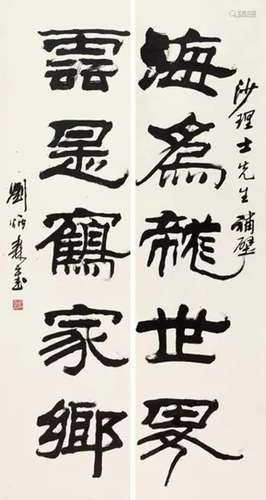 沙理士先生補壁
海為龍世界
雲是鶴家鄉
劉炳森書